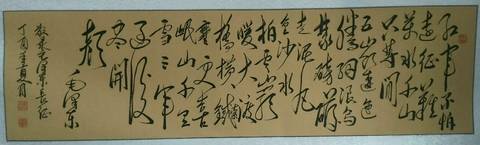 红军不怕
远征难
万水千山
只等闲
五岭逶迤
腾细浪乌
蒙磅礴
走泥丸
金沙水
拍云崖
暖大渡
桥横铁
索寒更喜
岷山千里
雪三军
过后
尽开
颜
毛泽东
毛泽东长征
丁酉年